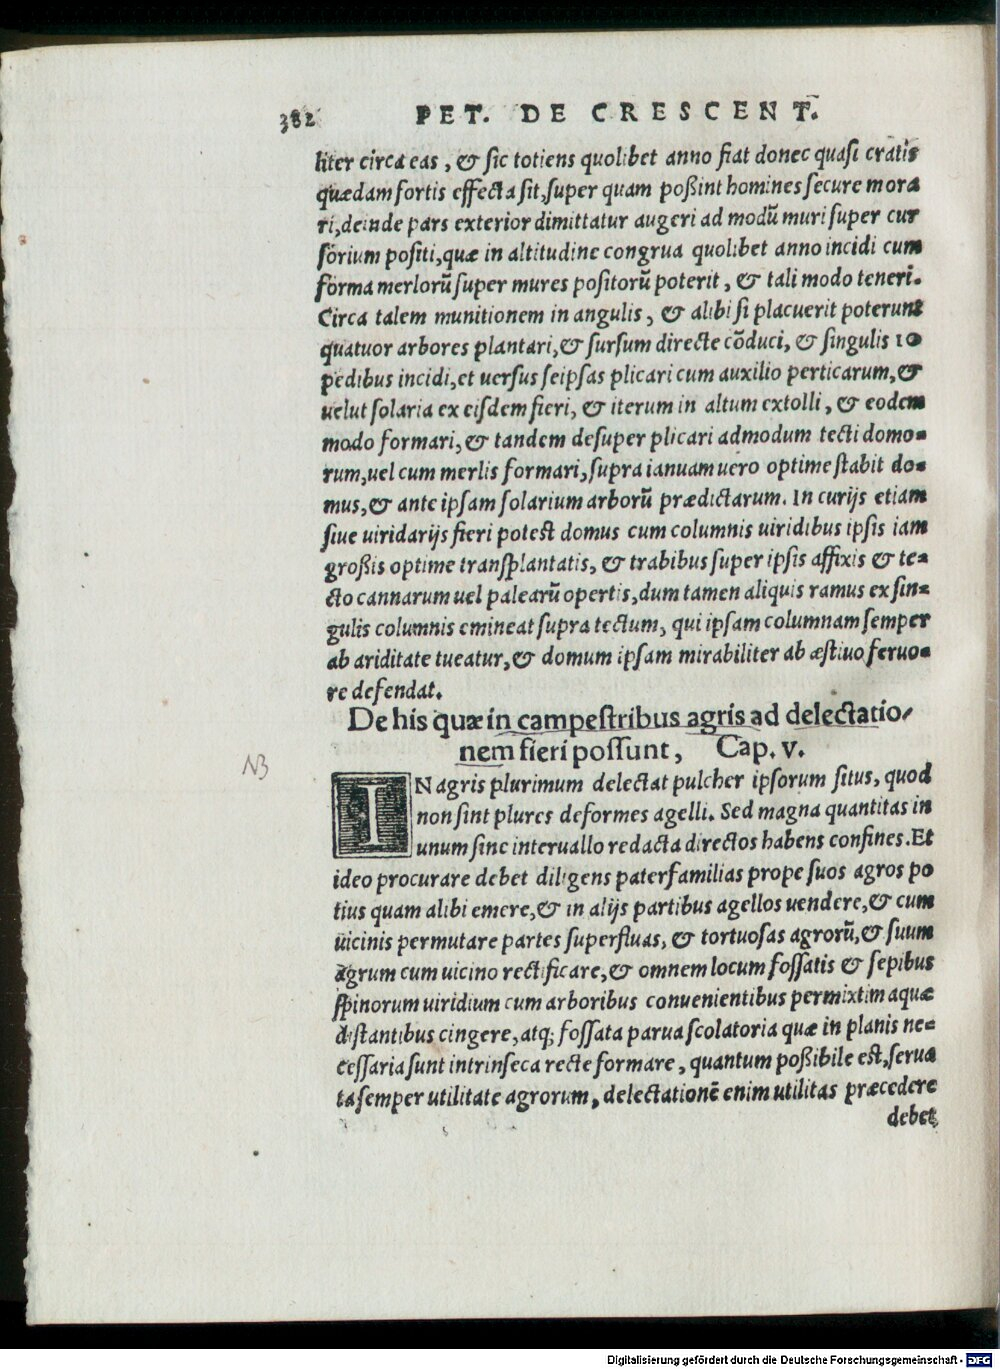 382 PET. DE CRESCENT.
liter circa eas, & sic totiens quolibet anno fiat donec quasi cratis
quædam fortis effecta sit, super quam poßint homines secure mora
ri, deinde pars exterior dimittatur augeri ad modū muri super cur
sorium positi, quæ in altitudine congrua quolibet anno incidi cum
forma merlorū super mures positorū poterit, & tali modo teneri.
Circa talem munitionem in angulis, & alibi si placuerit poterunt
quatuor arbores plantari, & sursum directe cōduci, & singulis 10
pedibus incidi, et uersus seipsas plicari cum auxilio perticarum, &
uelut solaria ex eisdem fieri, & iterum in altum extolli, & eodem
modo formari, & tandem desuper plicari admodum tecti domo-
rum, uel cum merlis formari, supra ianuam uero optime stabit do-
mus, & ante ipsam solarium arborū prædictarum. In curijs etiam
siue uiridarijs fieri potest domus cum columnis uiridibus ipsis iam
großis optime transplantatis, & trabibus super ipsis affixis & te-
cto cannarum uel palearū opertis, dum tamen aliquis ramus ex sin-
gulis columnis emineat supra tectum, qui ipsam columnam semper
ab ariditate tueatur, & domum ipsam mirabiliter ab æstiuo feruo-
re defendat.
De his quæ in campestribus agris ad delectatio-
nem fieri possunt, Cap. v.
NB
IN agris plurimum delectat pulcher ipsorum situs, quod
non sint plures deformes agelli. Sed magna quantitas in
unum sine interuallo redacta directos habens confines. Et
ideo procurare debet diligens paterfamilias prope suos agros po
tius quam alibi emere, & in alijs partibus agellos uendere, & cum
uicinis permutare partes superfluas, & tortuosas agrorū, & suum
agrum cum uicino rectificare, & omnem locum fossatis & sepibus
spinorum uiridium cum arboribus conuenientibus permixtim aquæ
distantibus cingere, atq; fossata parua scolatoria quæ in planis ne-
cessaria sunt intrinseca recte formare, quantum poßibile est, serua
ta semper utilitate agrorum, delectationē enim utilitas præcedere
debet
Digitalisierung gefördert durch die Deutsche Forschungsgemeinschaft - DFG